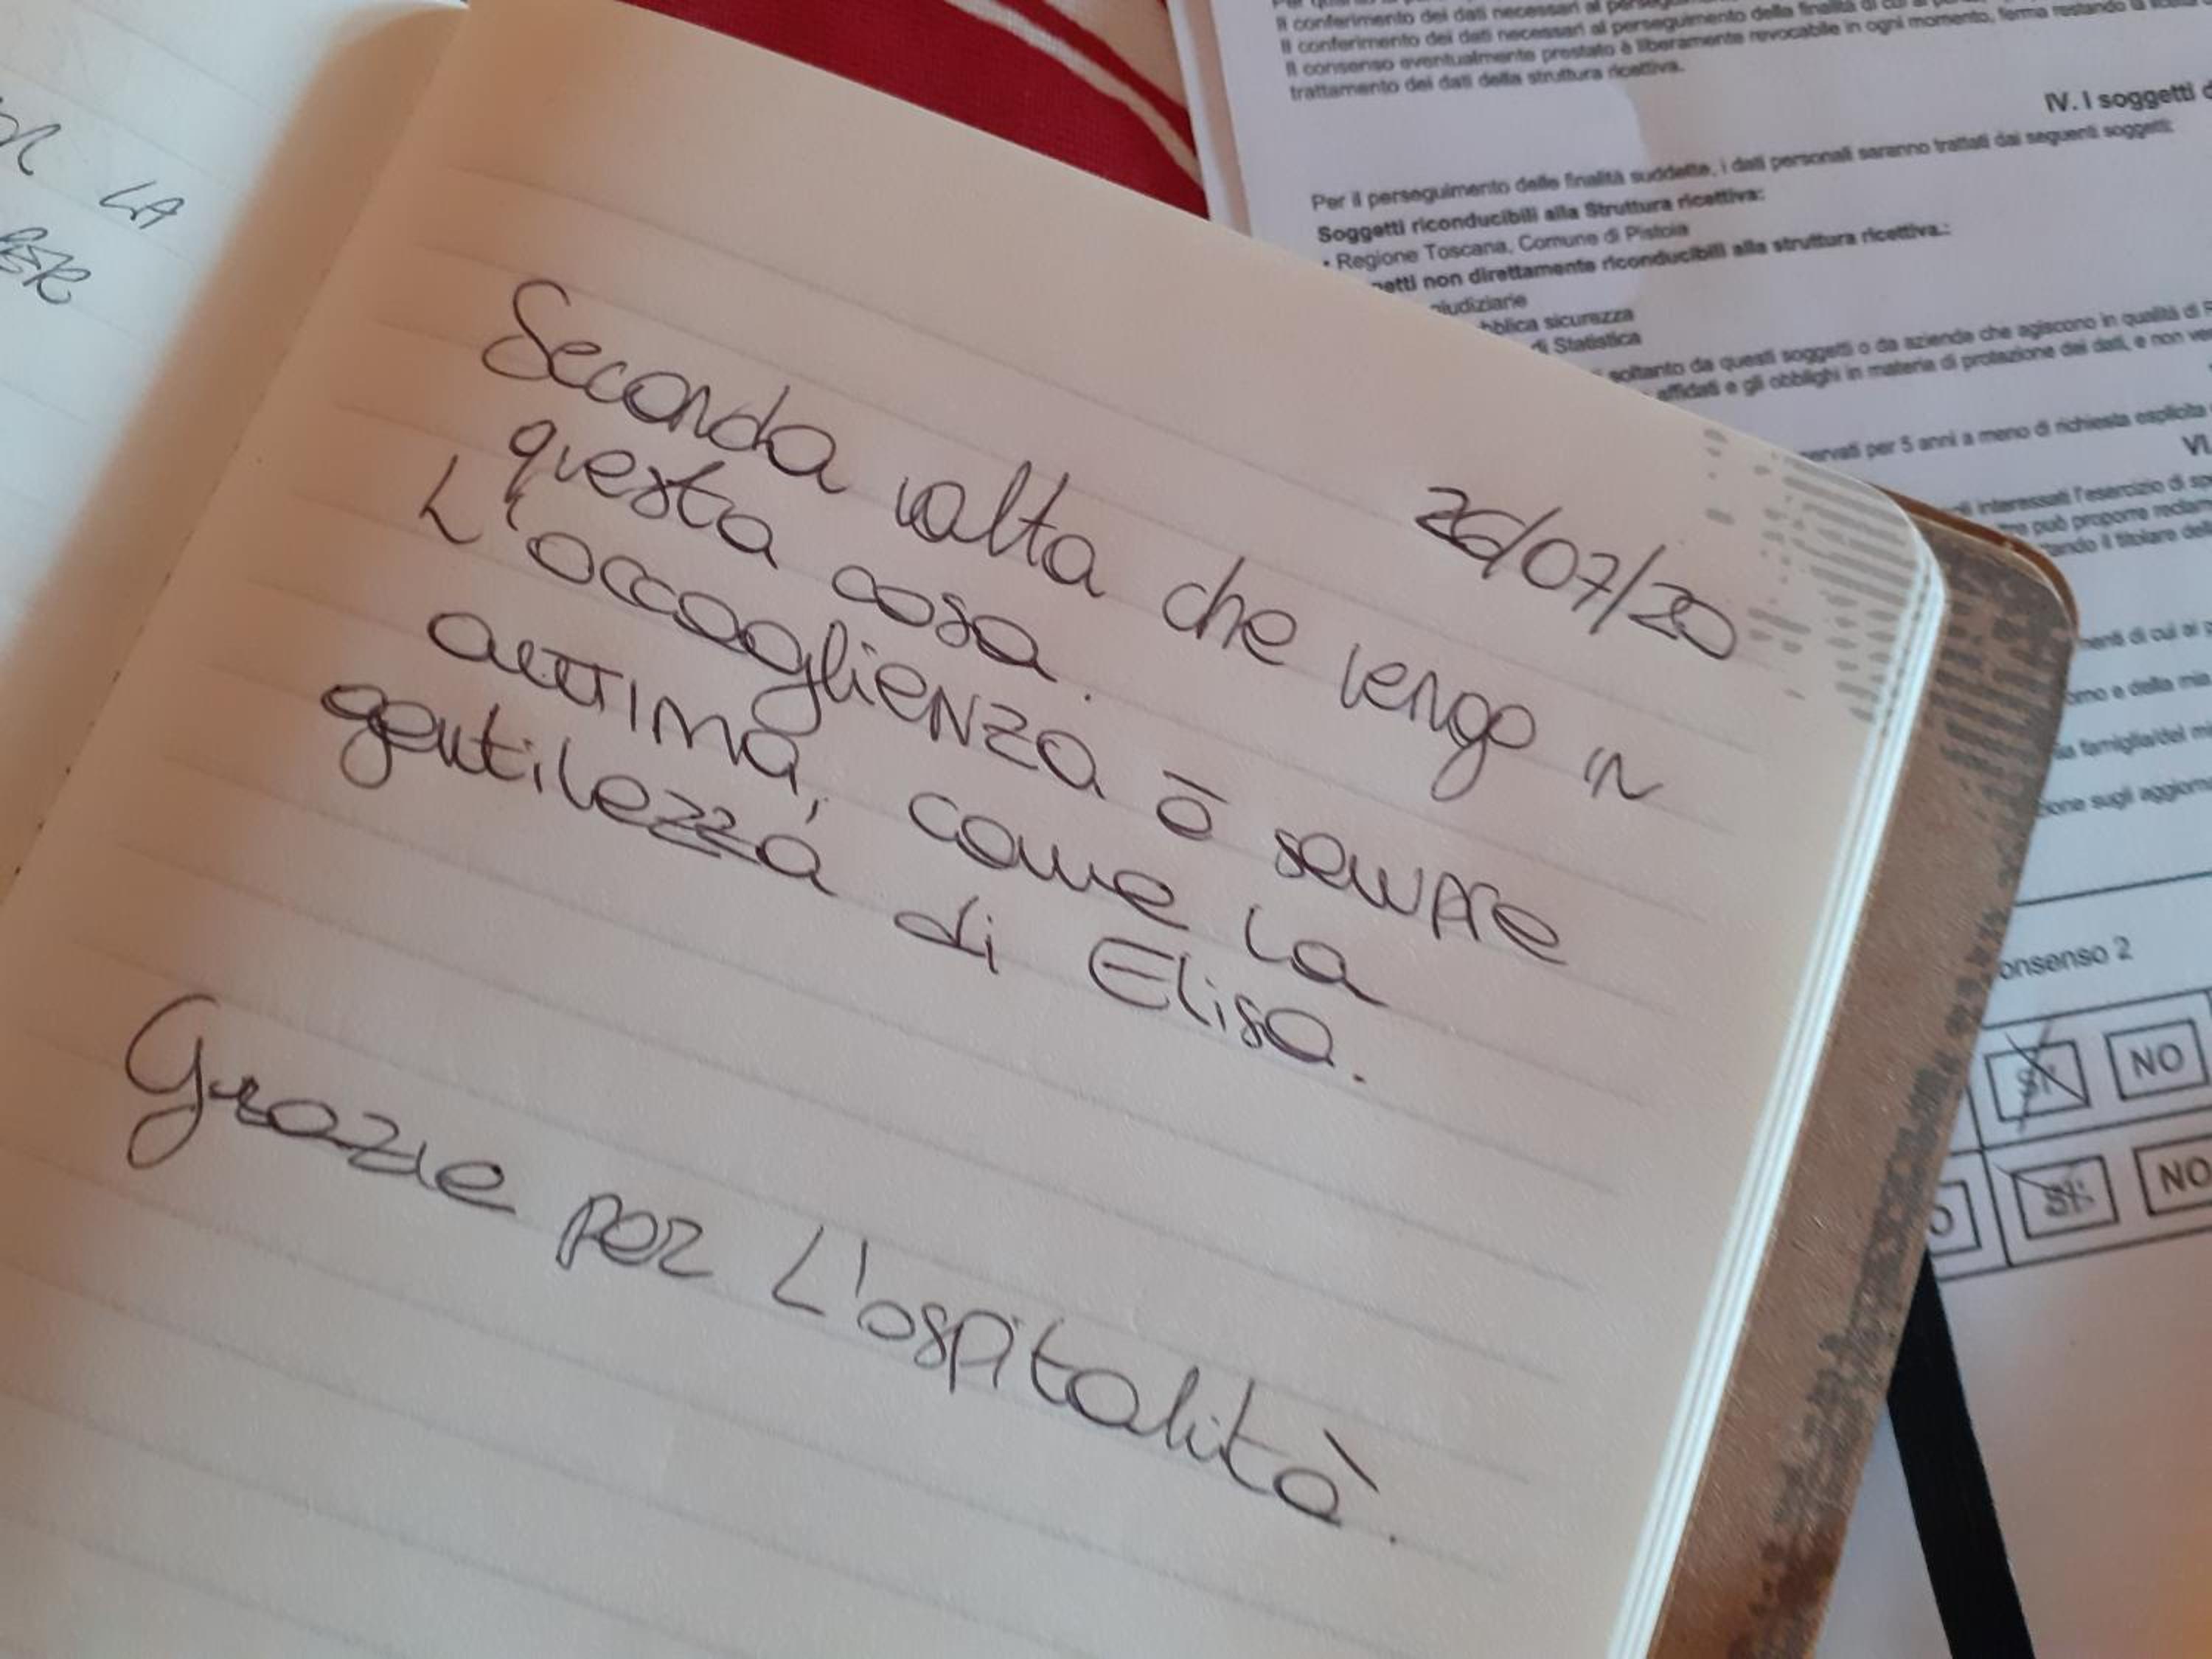 LA
26/07/20
Seconda volta che vengo in
questa casa.
L'accoglienza è sempre
ottima, come la
gentilezza di Elisa.
Grazie per L'ospitalità.
Il conferimento dei dati necessari al
Il conferimento dei dati necessari al perseguimento delle finalità di cui
Il consenso eventualmente prestato è liberamente revocabile in ogni momento, ferma restando la
trattamento dei dati della struttura ricettiva.
IV. I soggetti
Per il perseguimento delle finalità suddette, i dati personali saranno trattati dai seguenti soggetti:
Soggetti riconducibili alla Struttura ricettiva:
• Regione Toscana, Comune di Pistoia
etti non direttamente riconducibili alla struttura ricettiva.:
giudiziarie
bblica sicurezza
di Statistica
soltanto da questi soggetti o da aziende che agiscono in qualità di
affidati e gli obblighi in materia di protezione dei dati, e non
ervati per 5 anni a meno di richiesta esplicita
VI.
interessati l'esercizio di
può proporre
il titolare
menti di cui ai
e della mia
famiglia/del
zione sugli
onsenso 2
SI NO
SI NO